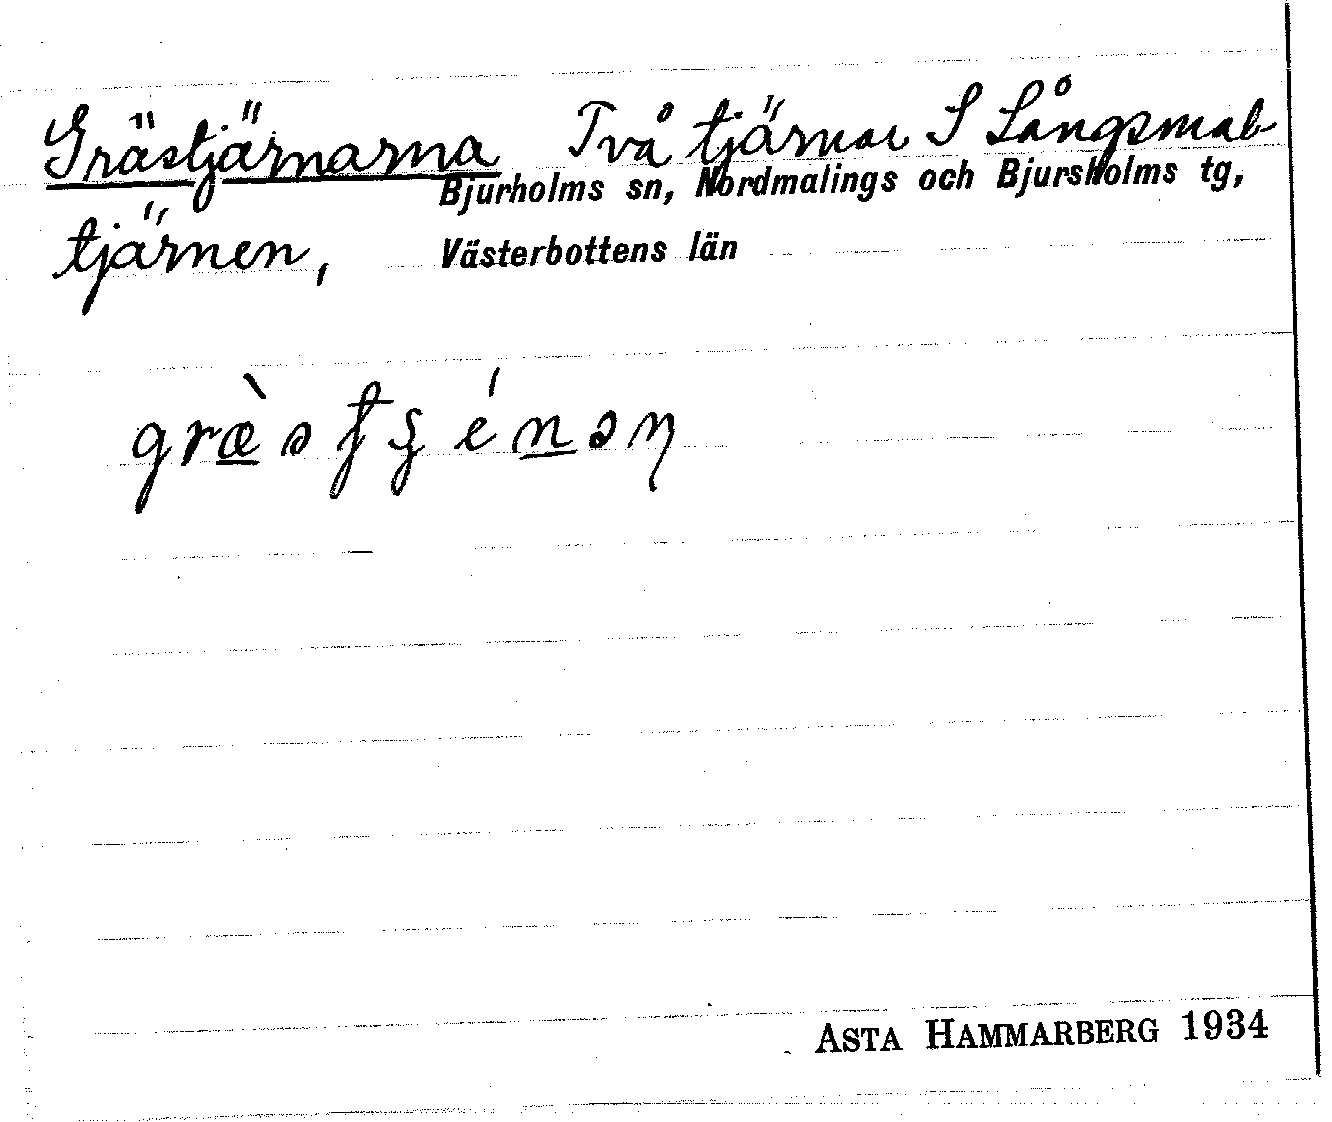 Grästjärnarna Två tjärnar S Långsmal-
Bjurholms sn, Nordmalings och Bjursholms tg,
tjärnen, Västerbottens län
ASTA HAMMARBERG 1934